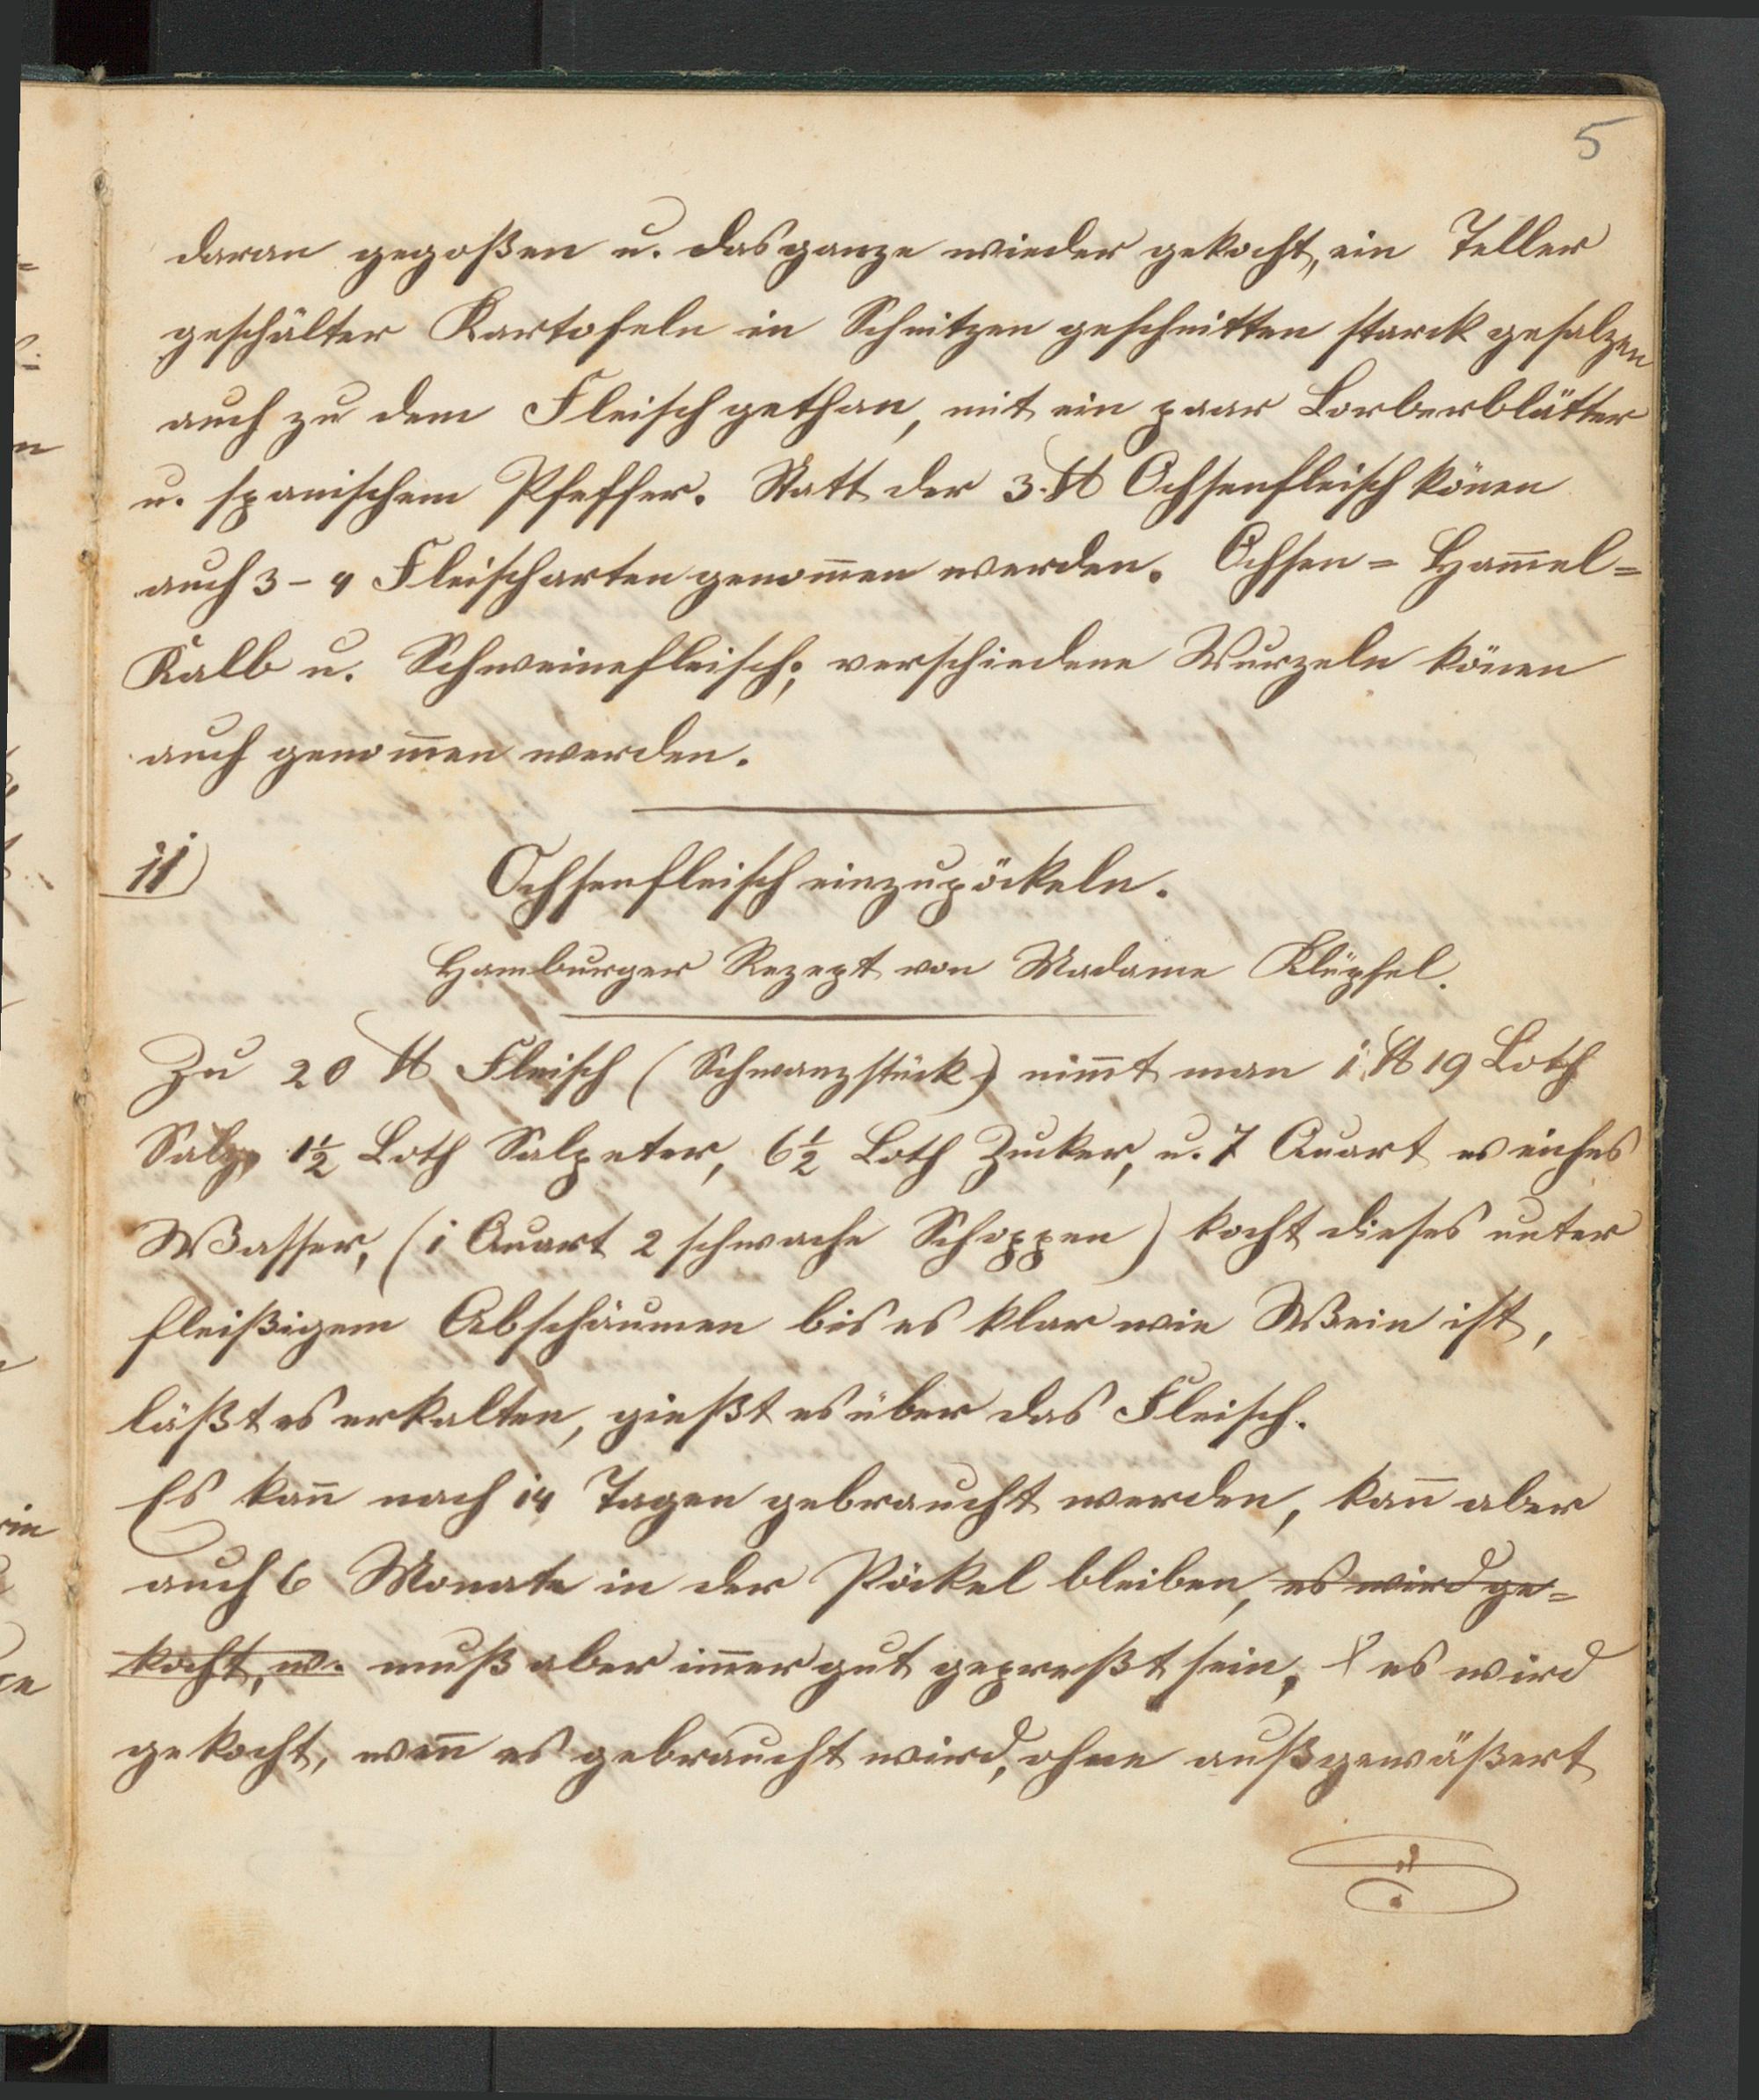 5
daran gegoßen u. das ganze wieder gekocht, ein Teller
geschälter Kartofeln in Schnitzen geschnitten starck gesalzen
auch zu dem Fleisch gethan, mit ein paar Lorberblätter
u. spanischem Pfeffer. Statt der 3. ℔ Ochsenfleisch köñen
auch 3 - 4 Fleischarten genom̄en werden. Ochsen = Ham̄el =
Kalb u. Schweinefleisch; verschiedene Wurzeln köñen
auch genom̄en werden.
11)
Ochsenfleisch einzupöckeln.
Hamburger Rezept von Madame Klüpfel.
Zu 20 ℔ Fleisch (Schwanzstück) nim̄t man 1 ℔ 19 Loth
Salz, 1½ Loth Salpeter, 6½ Loth Zucker, u. 7 Quart weiches
Wasser, (1 Quart 2 schwache Schoppen) kocht dieses unter
fleißigem Abschäumen bis es klar wie Wein ist,
läßt es erkalten, gießt es über das Fleisch.
Es kañ nach 14 Tagen gebraucht werden, kañ aber
auch 6 Monate in der Pöckel bleiben, es wird ge=
kocht, w. muß aber im̄er gut gepreßt sein, es wird
gekocht, weñ es gebraucht wird, ohne außgewäßert